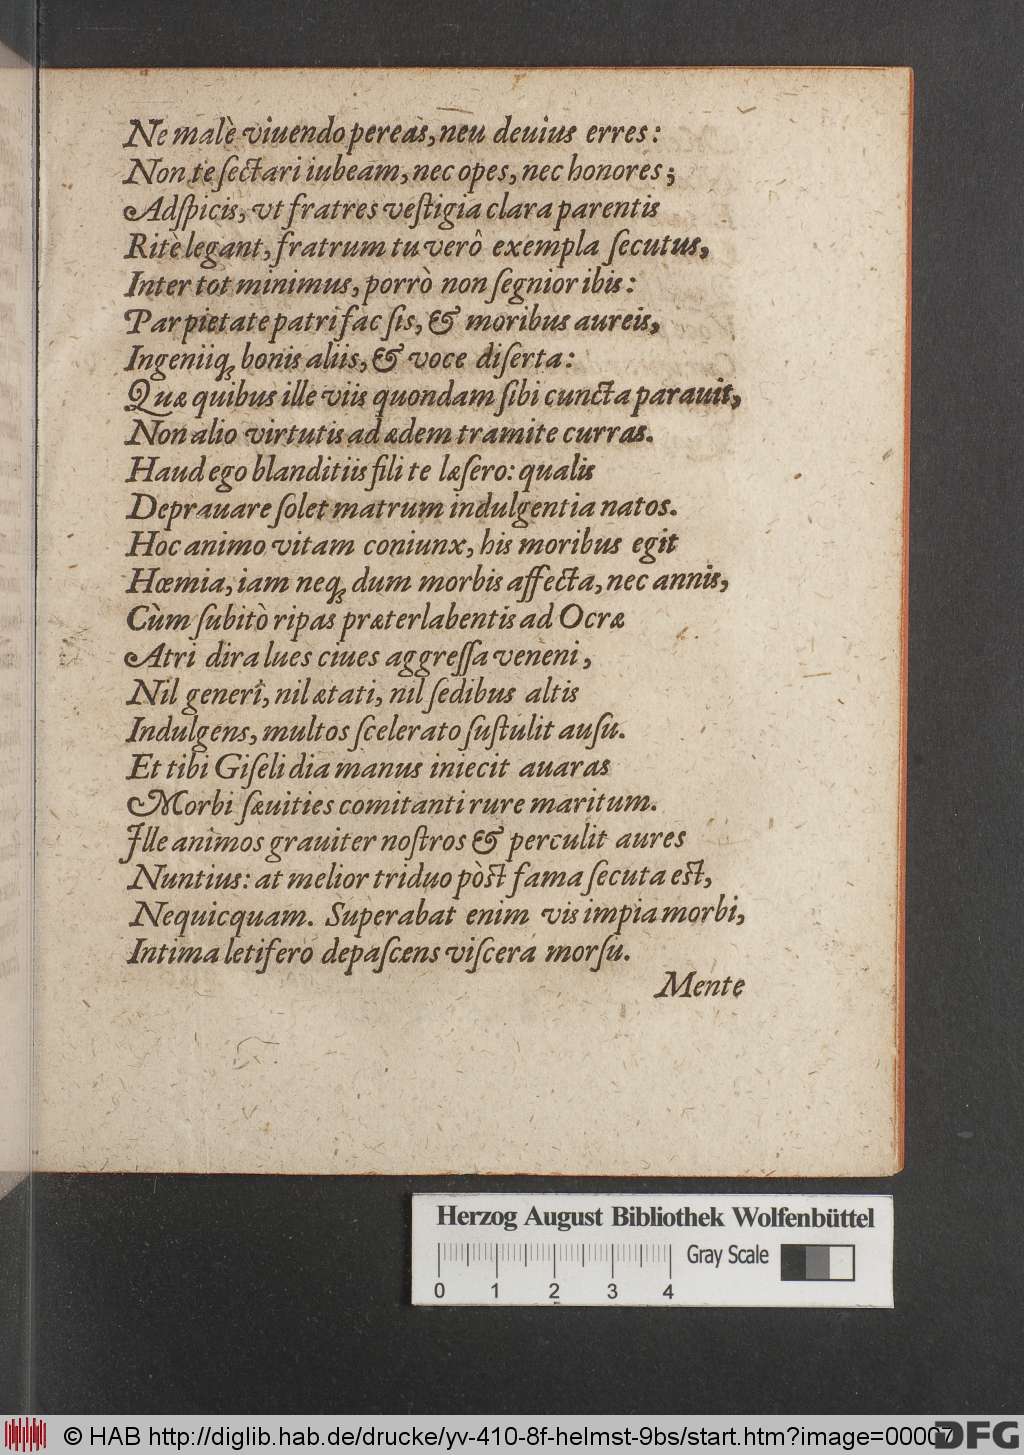 Ne malè viuendo pereas, neu deuius erres:
Non te ſectari iubeam, nec opes, nec honores;
Adſpicis, vt fratres veſtigia clara parentis
Ritè legant, fratrum tu verò exempla ſecutus,
Inter tot minimus, porrò non ſegnior ibis:
Par pietate patri fac ſis, & moribus aureis,
Ingeniiq́ꝫ bonis aliis, & voce diſerta:
Quæ quibus ille viis quondam ſibi cuncta parauit,
Non alio virtutis ad ædem tramite curras.
Haud ego blanditiis fili te læſero: qualis
Deprauare ſolet matrum indulgentia natos.
Hoc animo vitam coniunx, his moribus egit
Hœmia, iam neqꝫ dum morbis affecta, nec annis,
Cùm ſubitò ripas præterlabentis ad Ocræ
Atri dira lues ciues aggreſſa veneni,
Nil generi, nil ætati, nil ſedibus altis
Indulgens, multos ſcelerato ſuſtulit auſu.
Et tibi Giſeli dia manus iniecit auaras
Morbi ſæuities comitanti rure maritum.
Ille animos grauiter noſtros & perculit aures
Nuntius: at melior triduo pòſt fama ſecuta eſt,
Nequicquam. Superabat enim vis impia morbi,
Intima letifero depaſcens viſcera morſu.
Mente
Herzog August Bibliothek Wolfenbüttel
Gray Scale
0 1 2 3 4
© HAB http://diglib.hab.de/drucke/yv-410-8f-helmst-9bs/start.htm?image=00007
DFG